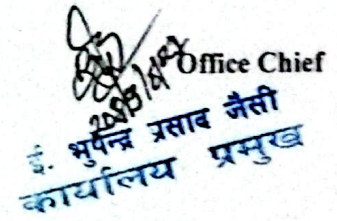 Office Chief
ई. भुपेन्द्र प्रसाद जैसी
कार्यालय प्रमुख